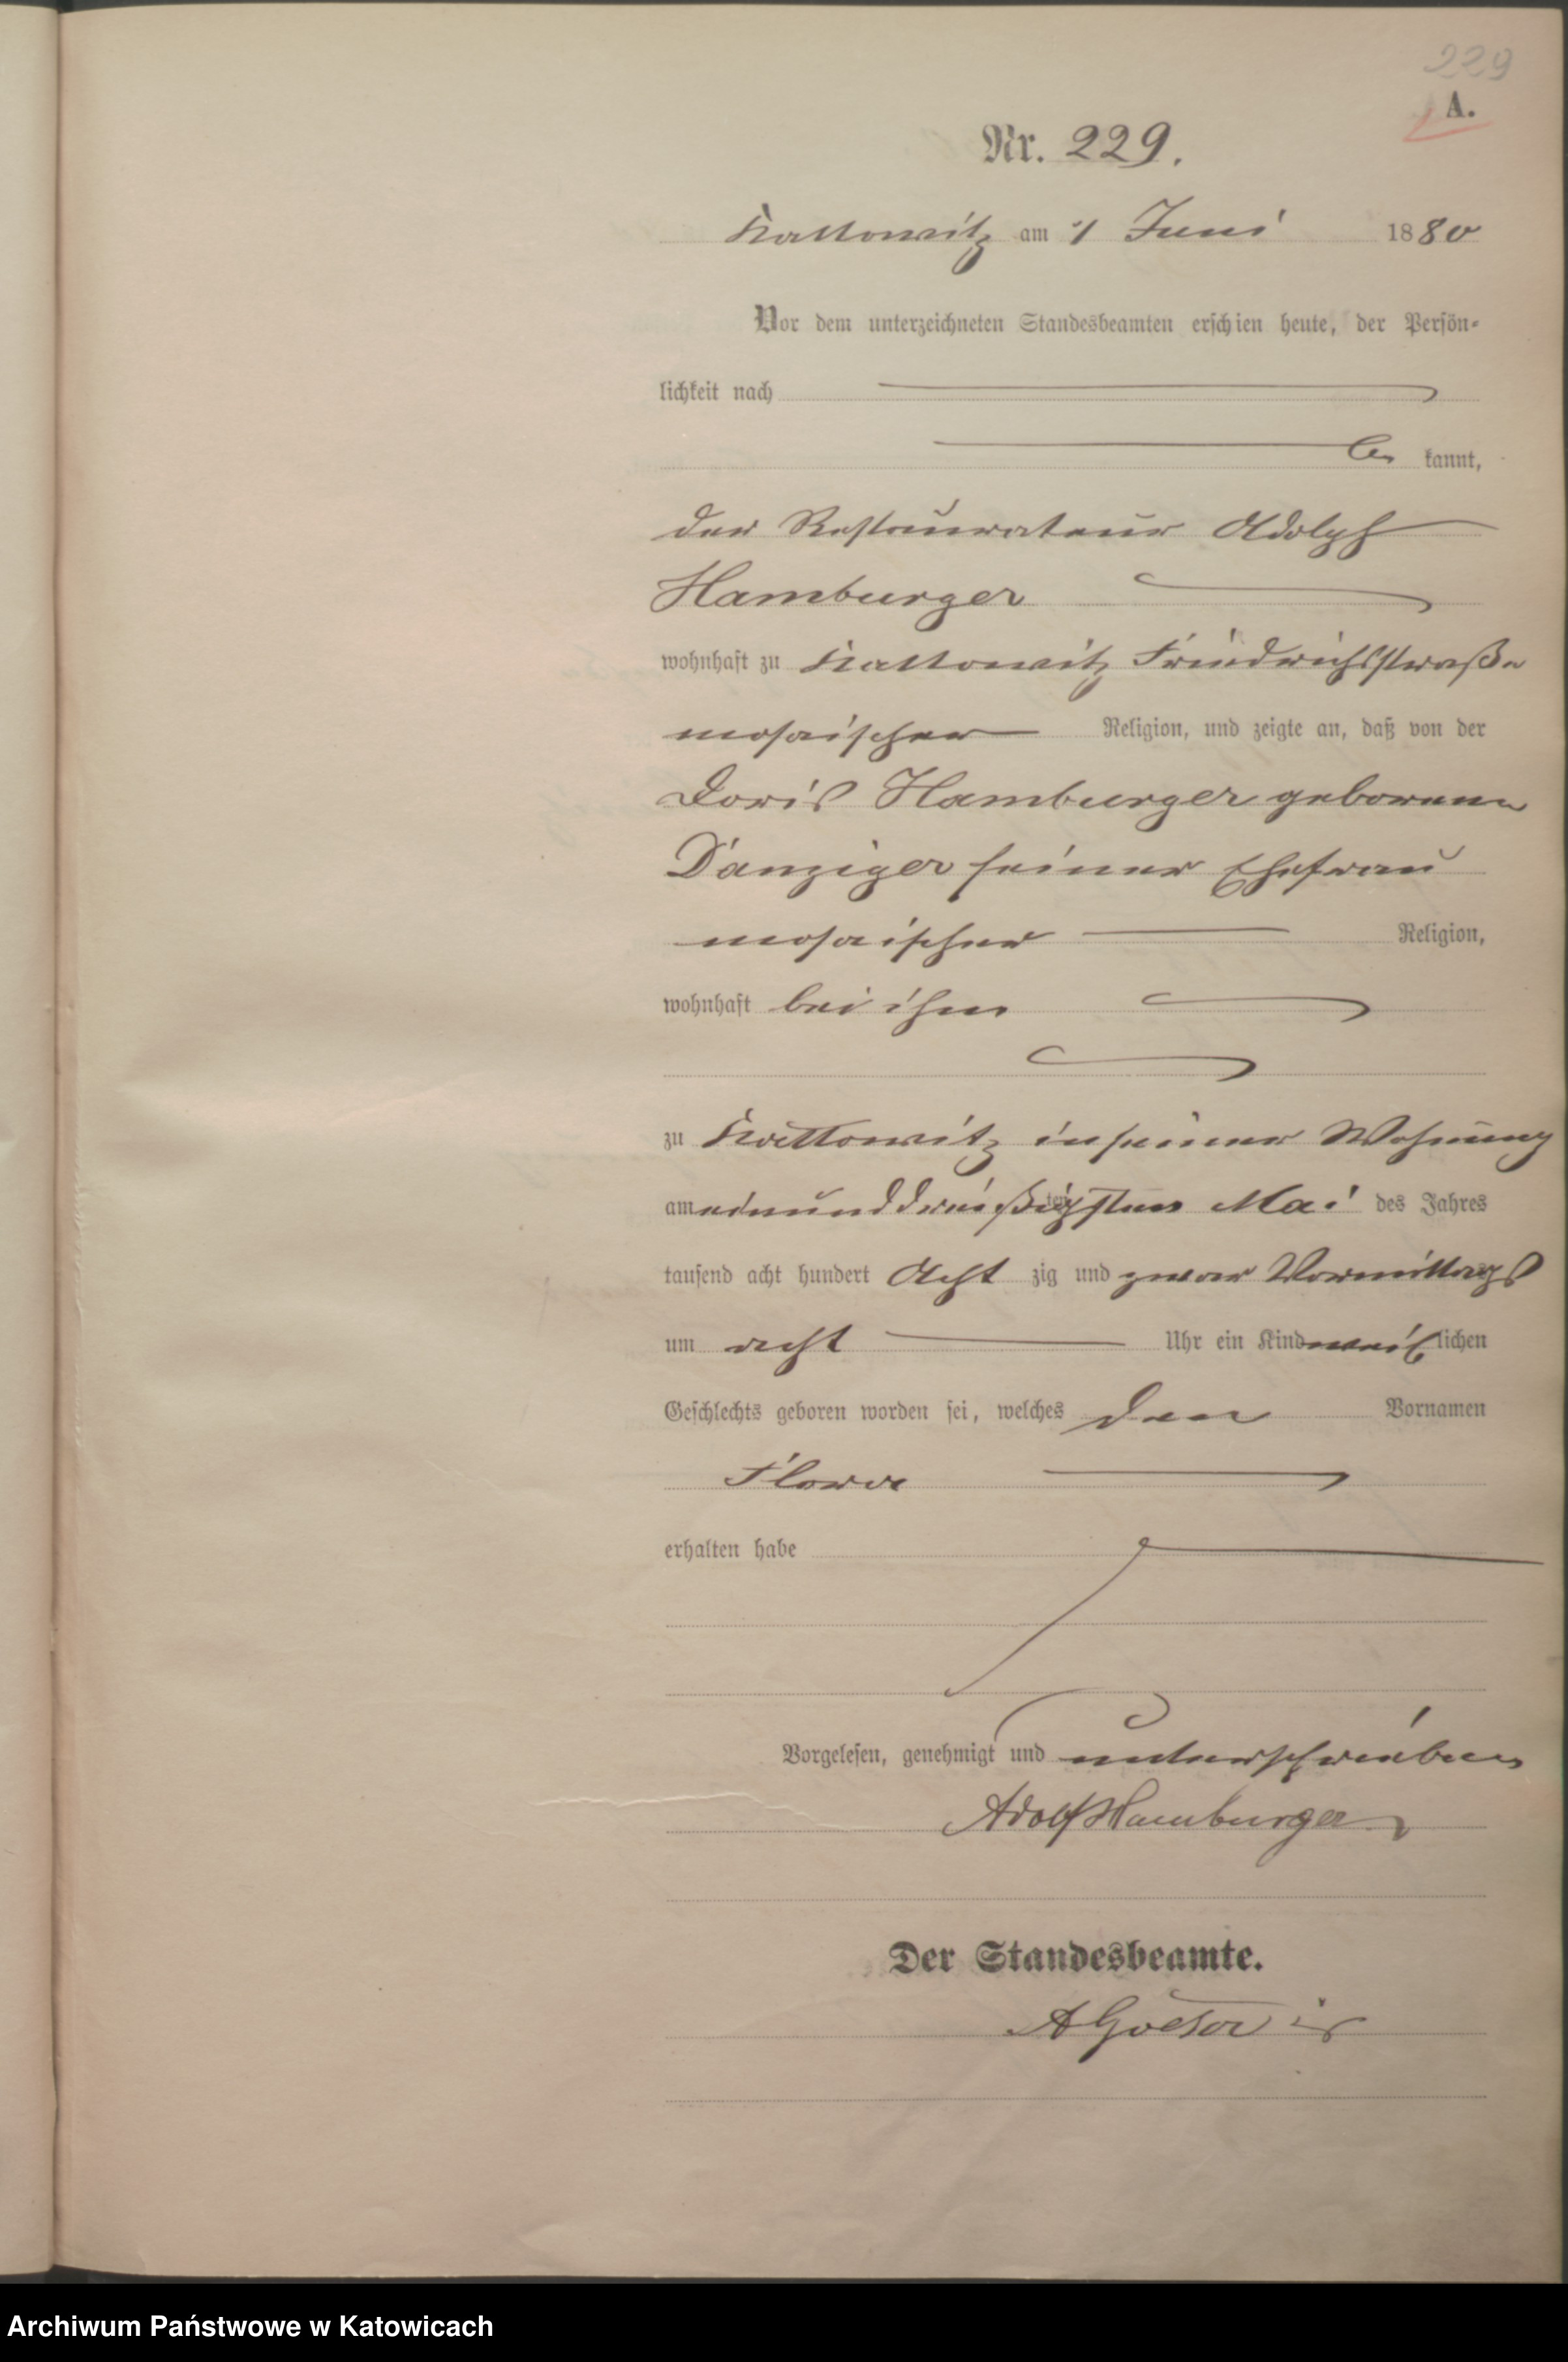 229
A.
Nr. 229.
Kattowitz am 1 Juni 1880
Vor dem unterzeichneten Standesbeamten erschien heute, der Persön-
lichkeit nach
be kannt,
der Restaurateur Adolph
Hamburger
wohnhaft zu Kattowitz Friedrichsstraße
mosaischer Religion, und zeigte an, daß von der
Doris Hamburger geborenen
Danziger seiner Ehefrau
mosaischer Religion,
wohnhaft bei ihm
zu Kattowitz in seiner Wohnung
am einunddreißigsten Mai des Jahres
tausend acht hundert Acht zig und zwar Vormittags
um acht Uhr ein Kind weiblichen
Geschlechts geboren worden sei, welches den Vornamen
Flora
erhalten habe
Vorgelesen, genehmigt und unterschrieben
Adolf Hamburger
Der Standesbeamte.
Archiwum Państwowe w Katowicach